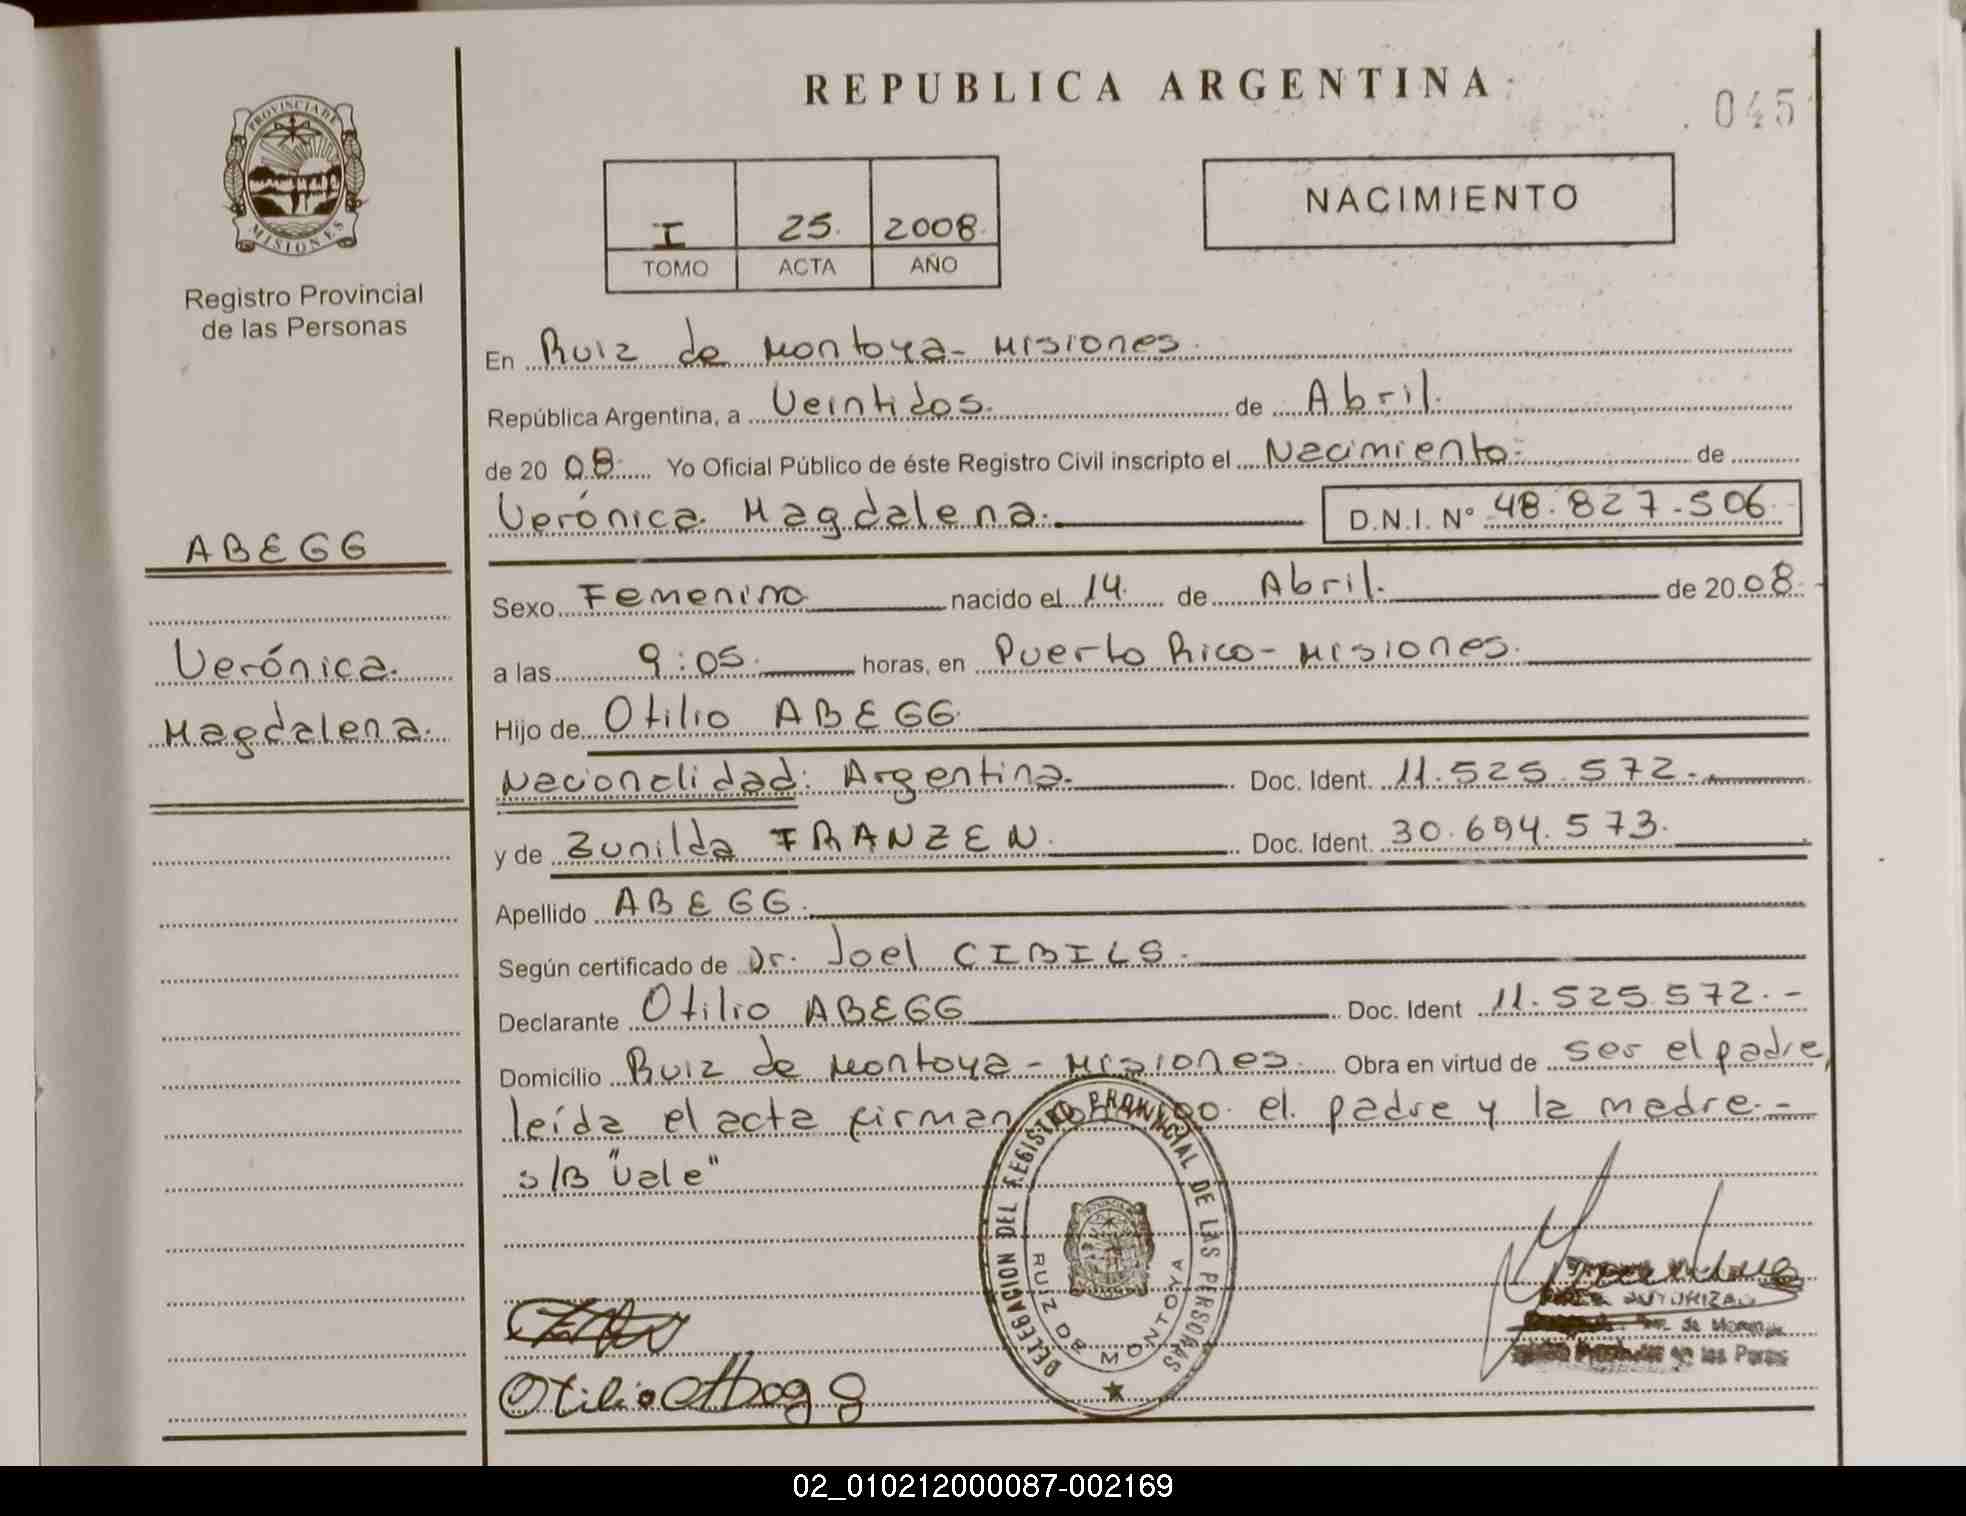 REPUBLICA ARGENTINA
045
PROVINCIA DE
MISIONES
Registro Provincial
de las Personas
I 25. 2008.
TOMO ACTA AÑO
NACIMIENTO
En Ruiz de Montoya - Misiones.
República Argentina, a Veintidos. de Abril.
de 20 08. Yo Oficial Público de éste Registro Civil inscripto el Nacimiento.- de
Verónica Magdalena. D.N.I. N° 48.827.506.
ABEGG
Verónica.
Magdalena.
Sexo Femenino nacido el 14. de Abril. de 20 08.
a las 9:05. horas, en Puerto Rico - Misiones.
Hijo de Otilio ABEGG.
Nacionalidad: Argentina. Doc. Ident. 11.525.572.
y de Zunilda FRANZEN. Doc. Ident. 30.694.573.
Apellido ABEGG.
Según certificado de Dr. Joel CIBILS.
Declarante Otilio ABEGG Doc. Ident 11.525.572.-
Domicilio Ruiz de Montoya - Misiones. Obra en virtud de ser el padre,
leída el acta firman el padre y la madre.-
s/B "Vale"
DELEGACION DEL REGISTRO PROVINCIAL DE LAS PERSONAS
RUIZ DE MONTOYA
Otilio Abegg
02_010212000087-002169